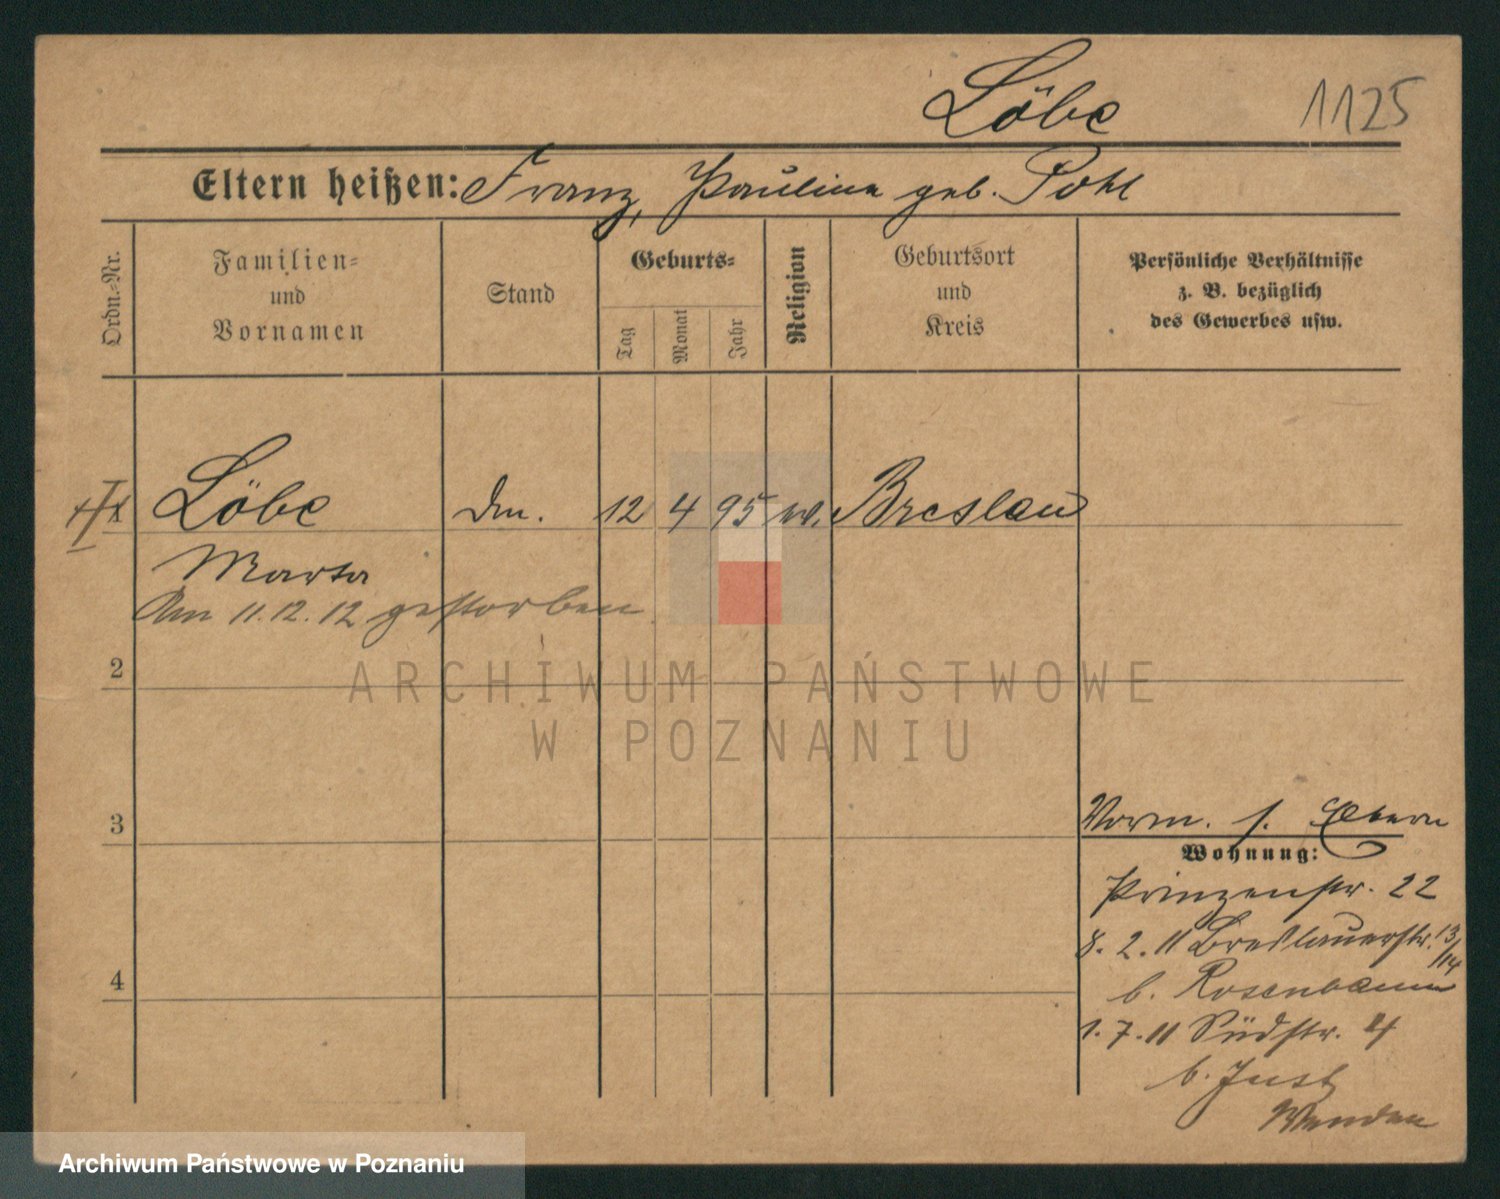 Löbe 1125
Eltern heißen: Franz, Pauline geb. Pohl
Ordn.-Nr.
Familien-
und
Vornamen
Stand
Geburts-
Tag
Monat
Jahr
Religion
Geburtsort
und
Kreis
Persönliche Verhältnisse
z. B. bezüglich
des Gewerbes usw.
1 Löbe 12 4 95 Breslau
Marta
Am 11.12.12 gestorben
2
3
4
Vorm. s. Eltern
Wohnung:
Prinzenstr. 22
8. 2. 11 Breslauerstr. 13/14
b. Rosenbaum
1. 7. 11 Südstr. 4
b. Just
Wenden
ARCHIWUM PAŃSTWOWE
W POZNANIU
Archiwum Państwowe w Poznaniu